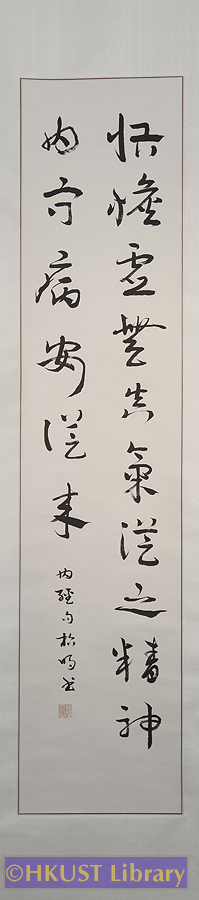 恬憺虛無真氣從之精神
內守病安從來
內經句柏鳴書
©HKUST Library